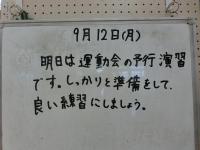 9月12日(月)
明日は運動会の予行演習
です。しっかりと準備をして、
良い練習にしましょう。